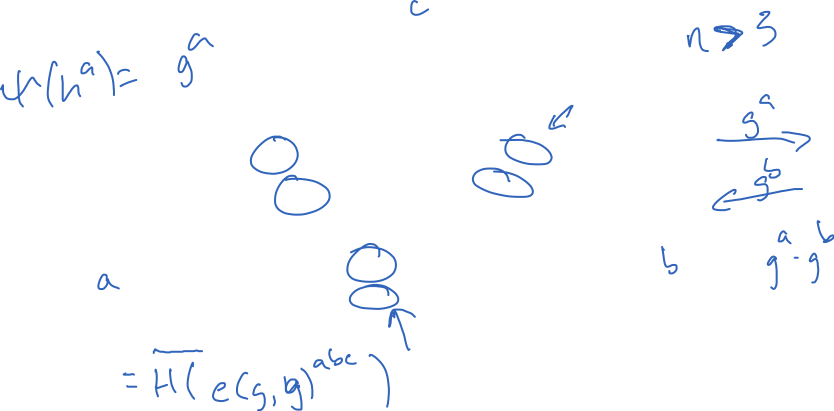 c
n > 3
ψ(h^a) = g^a
g^a
g^b
a
b
g^a · g^b
= H( e(g,g)^abc )